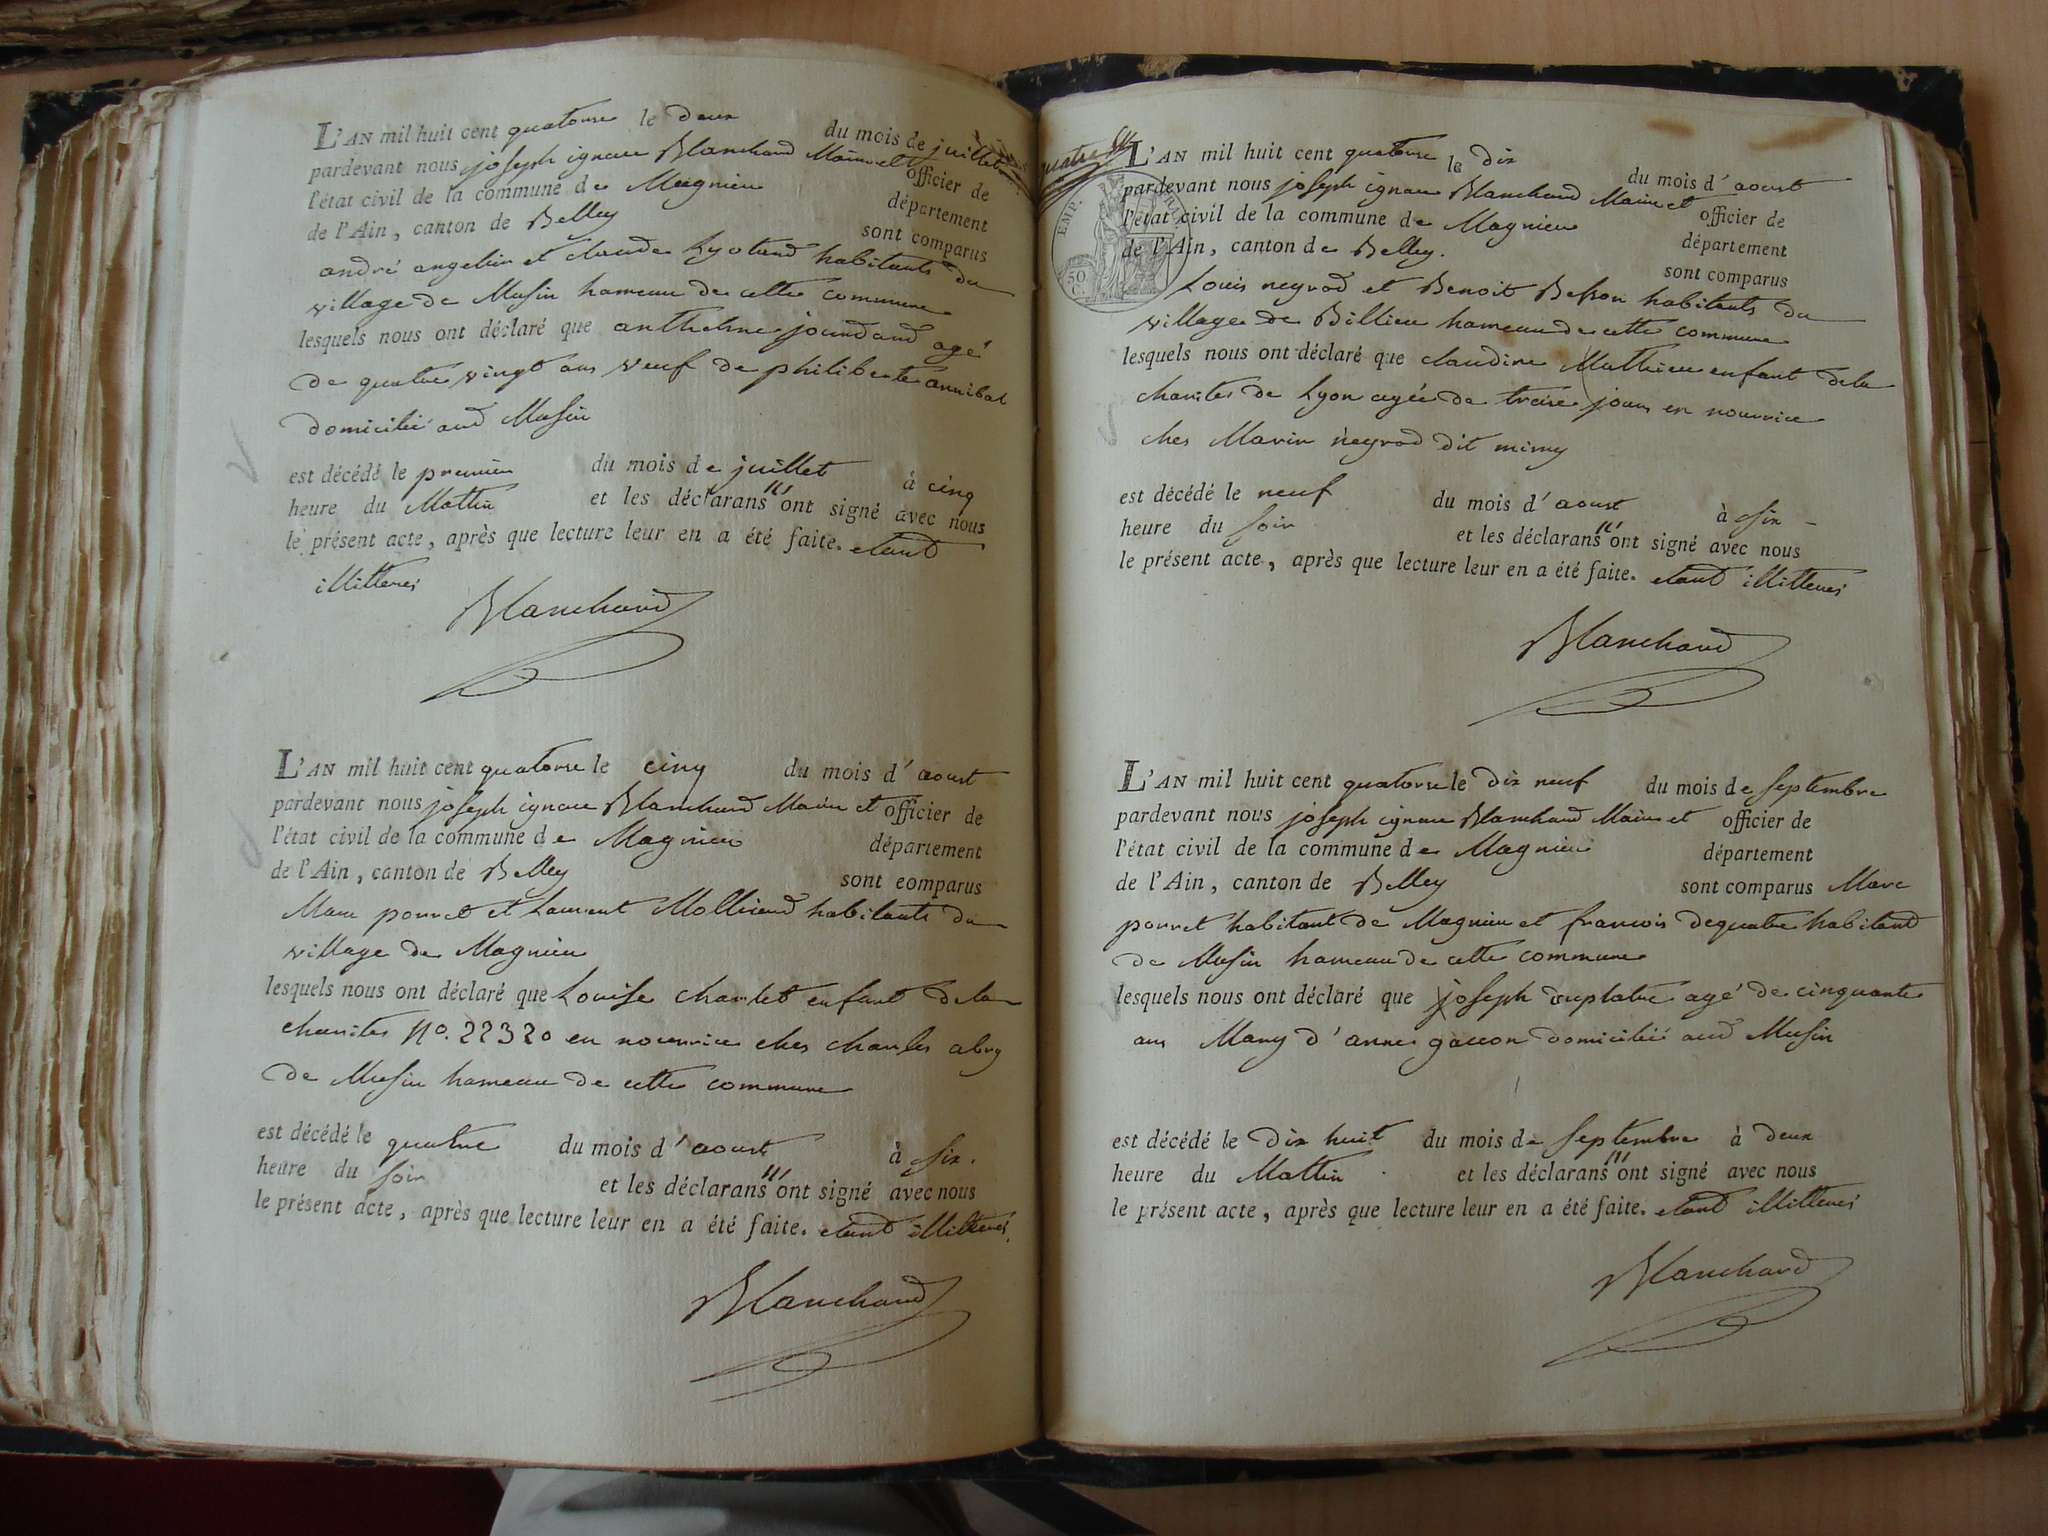 L'AN mil huit cent quatorse le deux du mois de juillet
pardevant nous joseph ignace Blanchard Maire et officier de
l'état civil de la commune de Magnieu département
de l'Ain, canton de Belley sont comparus
andré angelin et claude Lyotard habitants du
village de Musin hameau de cette commune
lesquels nous ont déclaré que anthelme jourdand agé
de quatre vingt ans veuf de philiberte annibal
domicilié aud Musin
est décédé le premier du mois de juillet à cinq
heure du Mattin et les déclarans n'ont signé avec nous
le présent acte, après que lecture leur en a été faite. etant
illitterés
Blanchard
L'AN mil huit cent quatorse le cinq du mois d'aoust
pardevant nous joseph ignace Blanchard Maire et officier de
l'état civil de la commune de Magnieu département
de l'Ain, canton de Belley sont comparus
Marc pourret et Laurent Mollirand habitants du
village de Magnieu
lesquels nous ont déclaré que Louise charlet enfant dela
charites No. 22320 en nourrice ches charles abry
de Musin hameau de cette commune
est décédé le quatre du mois d'aoust à six.
heure du soir et les déclarans n'ont signé avec nous
le présent acte, après que lecture leur en a été faite. etant illitterés
Blanchard
quatre
EMP.
50
L'AN mil huit cent quatorse le dix du mois d'aoust
pardevant nous joseph ignace Blanchard Maire et officier de
l'état civil de la commune de Magnieu département
de l'Ain, canton de Belley. sont comparus
Louis neyrod et Benoit Besson habitants du
village de Billieu hameau de cette commune
lesquels nous ont déclaré que claudine Mathieu enfant dela
charites de Lyon agée de treise jours en nourrice
ches Marin neyrod dit mimy
est décédé le neuf du mois d'aoust à six
heure du soir et les déclarans n'ont signé avec nous
le présent acte, après que lecture leur en a été faite. etant illitterés
Blanchard
L'AN mil huit cent quatorse le dix neuf du mois de septembre
pardevant nous joseph ignace Blanchard Maire et officier de
l'état civil de la commune de Magnieu département
de l'Ain, canton de Belley sont comparus Marc
pourret habitant de Magnieu et francois dequatre habitant
de Musin hameau de cette commune
lesquels nous ont déclaré que joseph duplatre agé de cinquante
ans Mary d'anne gaccon domicilié aud Musin
est décédé le dix huit du mois de septembre à deux
heure du Mattin et les déclarans n'ont signé avec nous
le présent acte, après que lecture leur en a été faite. etant illitterés
Blanchard